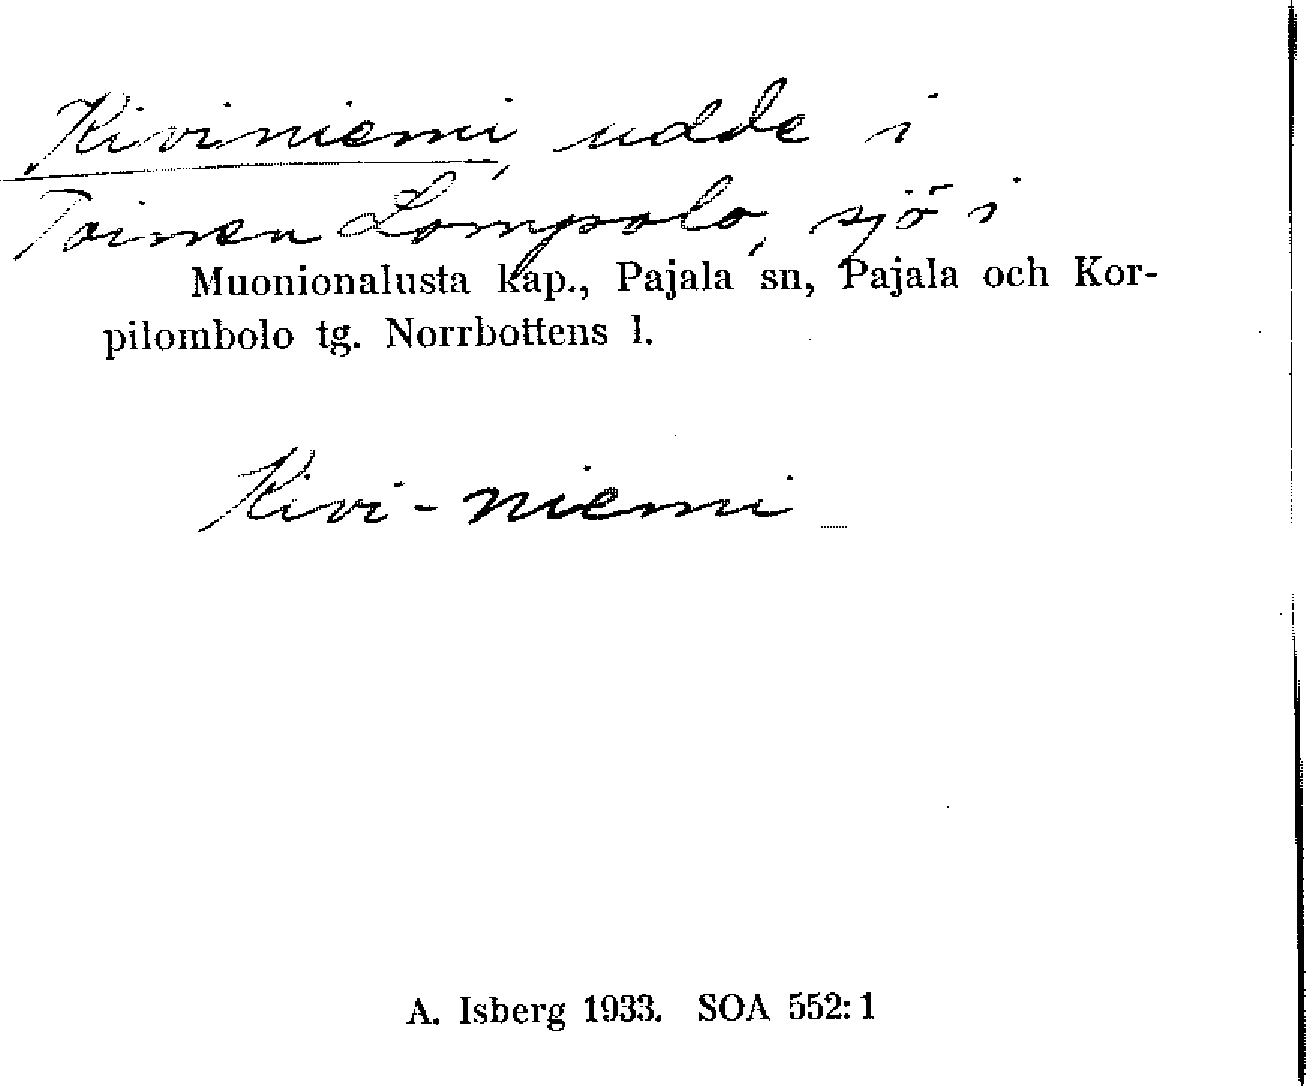 Kiviniemi, udde i
Toinen Lompolo, sjö i
Muonionalusta kap., Pajala sn, Pajala och Kor-
pilombolo tg. Norrbottens l.
Kivi-niemi
A. Isberg 1933. SOA 552:1